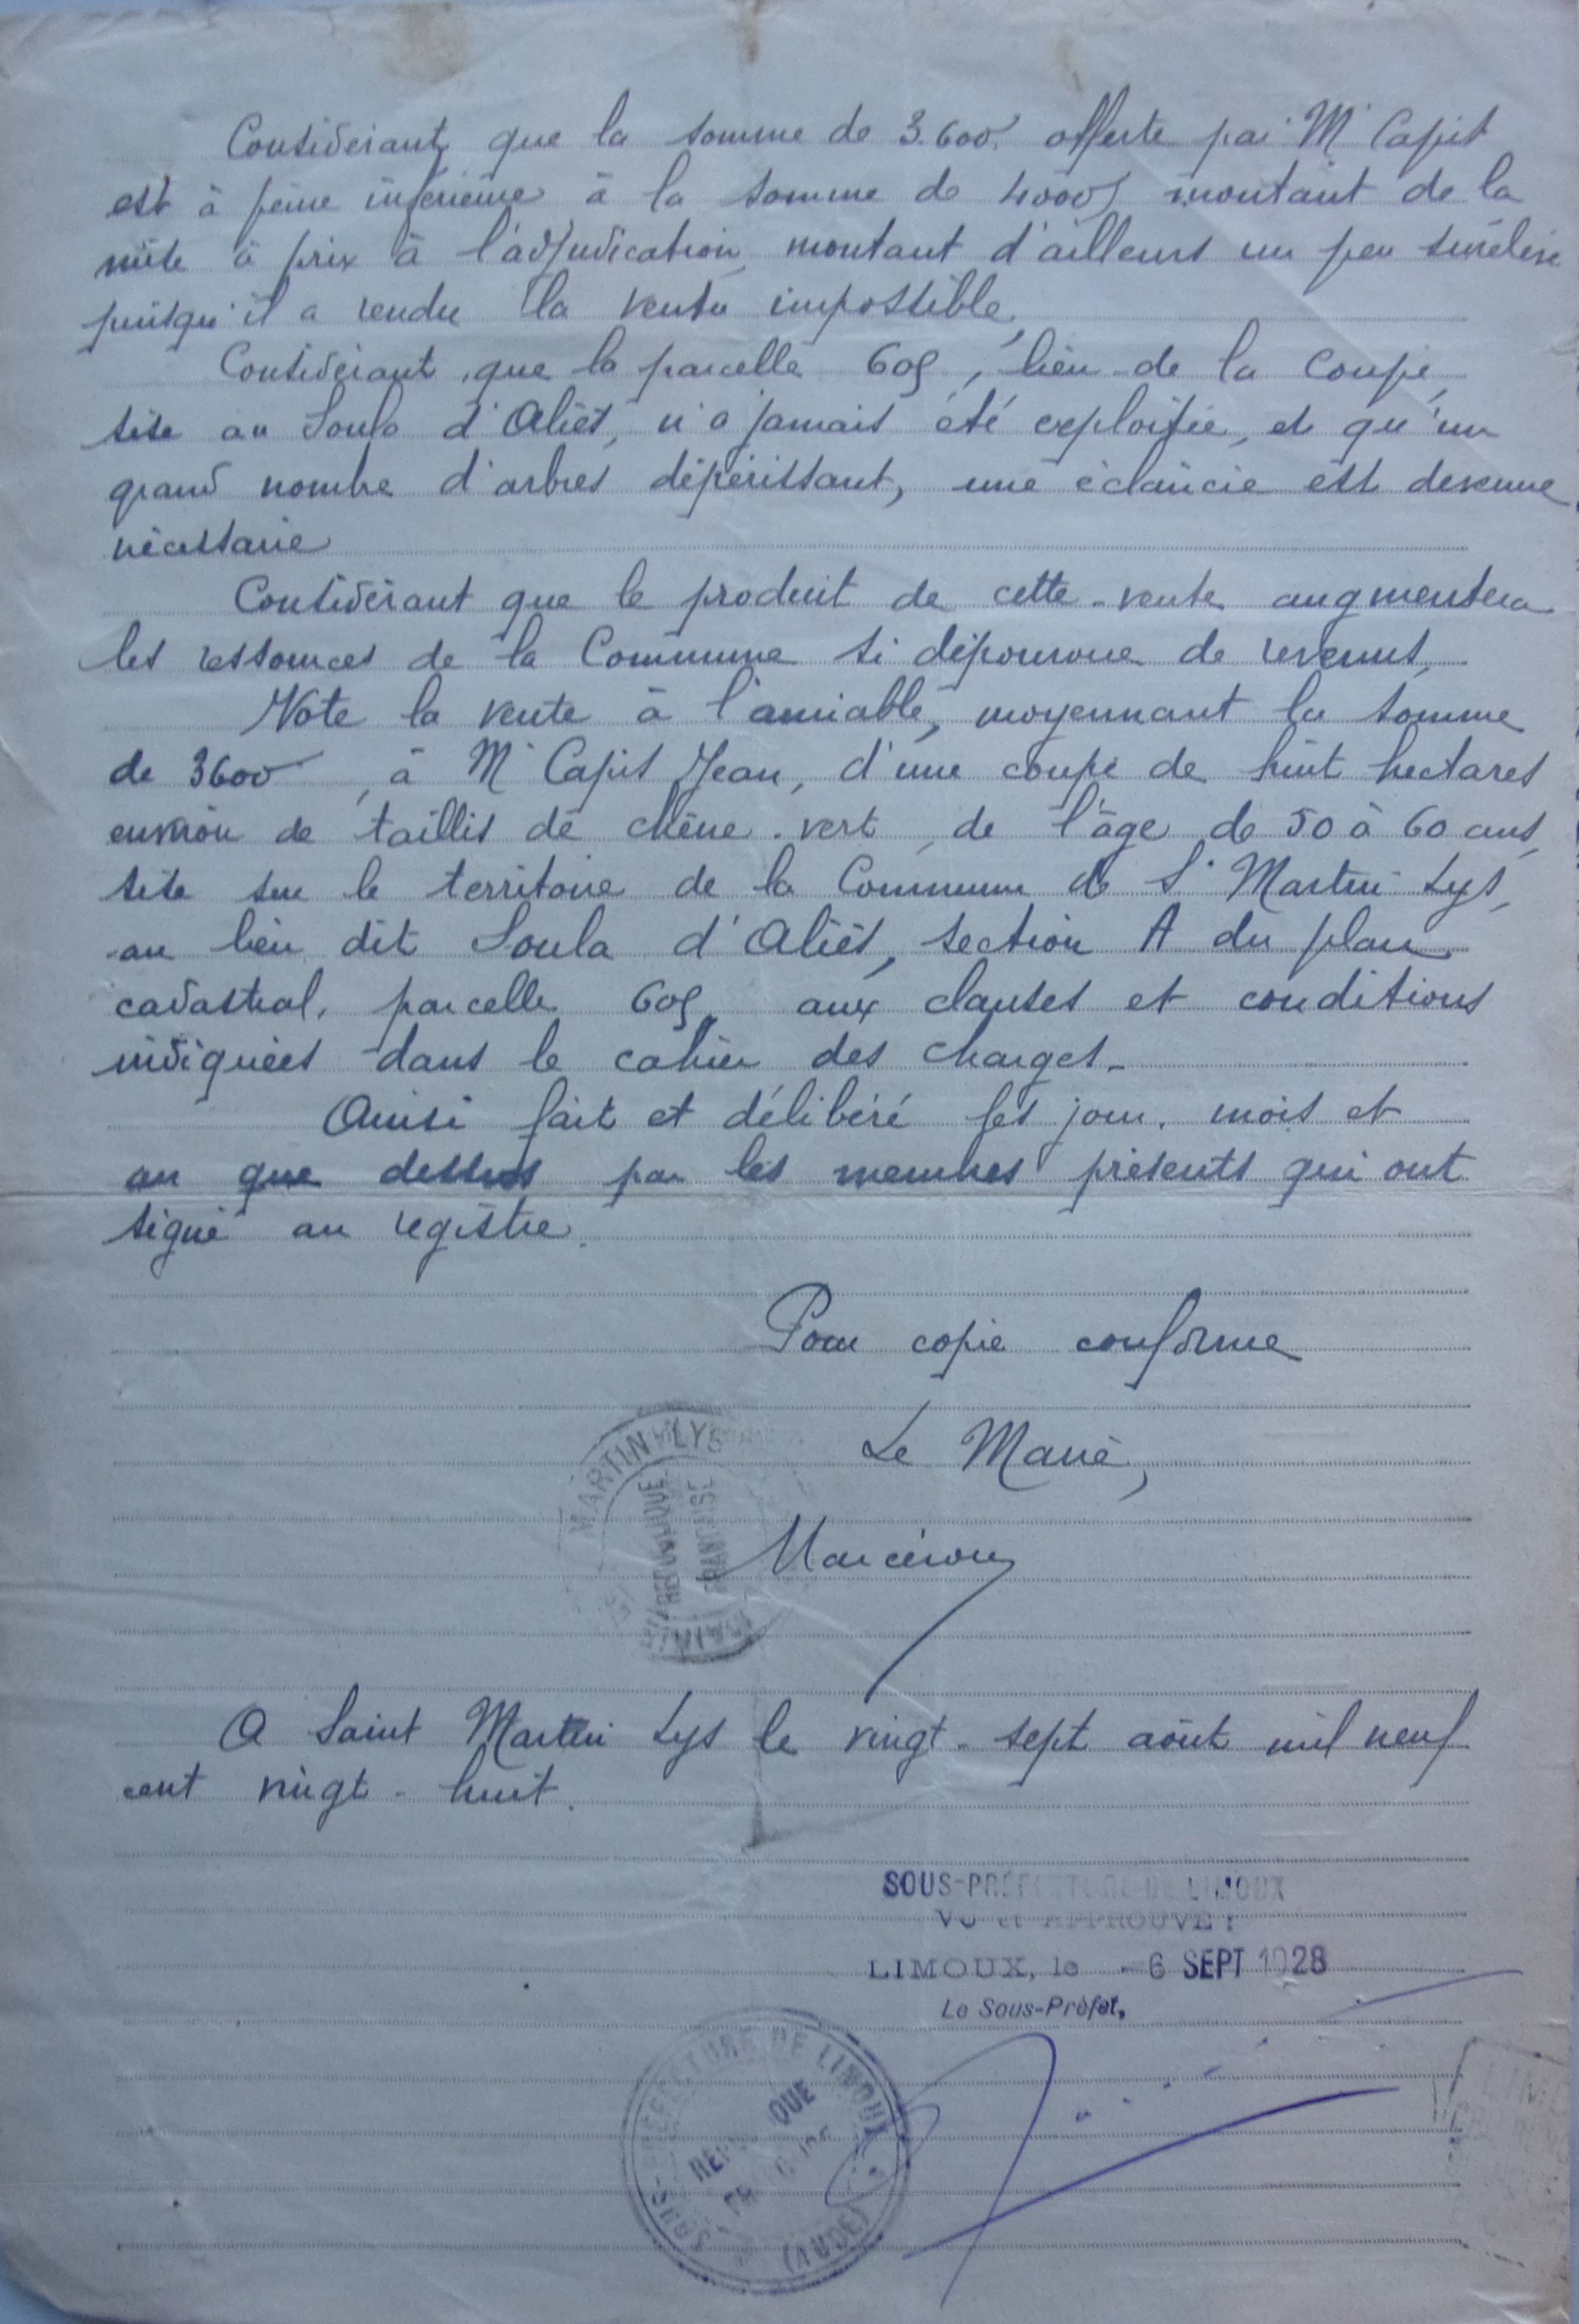 Considérant que la somme de 3.600f offerte par Mr Capit
est à peine inférieure à la somme de 4000f montant de la
mise à prix à l'adjudication montant d'ailleurs un peu
puisqu'il a rendu la vente impossible,
Considérant que la parcelle 609, lieu de la coupe,
sise au Soula d'Aliès, n'a jamais été exploitée, et qu'un
grand nombre d'arbres dépérissant, une éclaircie est devenue
nécessaire
Considérant que le produit de cette vente augmentera
les ressources de la Commune si dépourvue de revenus,
Vote la vente à l'amiable, moyennant la somme
de 3600f, à Mr Capit Jean, d'une coupe de huit hectares
environ de taillis de chêne-vert, de l'âge de 50 à 60 ans,
sise sur le territoire de la Commune de St Martin Lys,
au lieu dit Soula d'Aliès, section A du plan
cadastral, parcelle 609, aux clauses et conditions
indiquées dans le cahier des charges.
Ainsi fait et délibéré les jour, mois et
an que dessus par les membres présents qui ont
signé au registre.
Pour copie conforme
Le Maire,
MARTIN LYS
RÉPUBLIQUE
FRANÇAISE
MAIRIE
A Saint Martin Lys le vingt-sept août mil neuf
cent vingt-huit.
SOUS-PRÉFECTURE DE LIMOUX
VU et APPROUVÉ :
LIMOUX, le -6 SEPT 1928
Le Sous-Préfet,
SOUS-PRÉFECTURE DE LIMOUX
(AUDE)